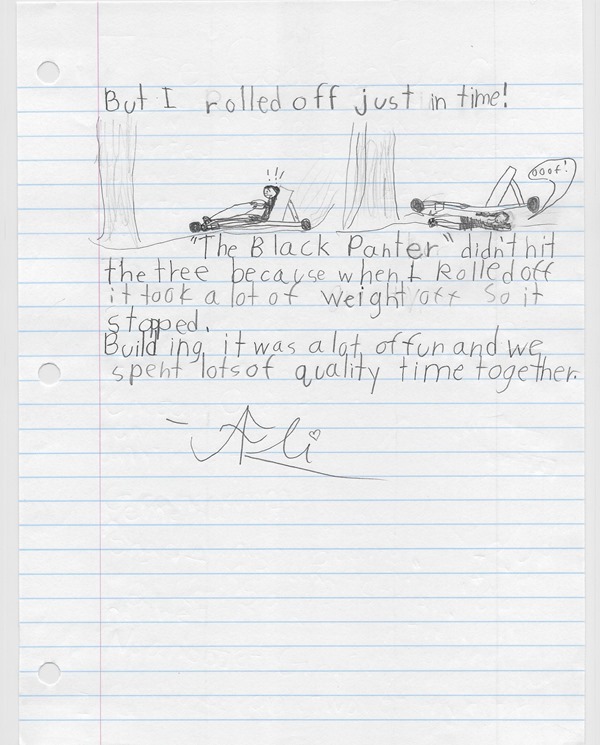 But I rolled off just in time!
!!!
ooof!
"The Black Panter" didn't hit
the tree because when I Rolled off
it took a lot of weight off So it
stopped.
Building it was a lot of fun and we
spent lots of quality time together.
- Ali